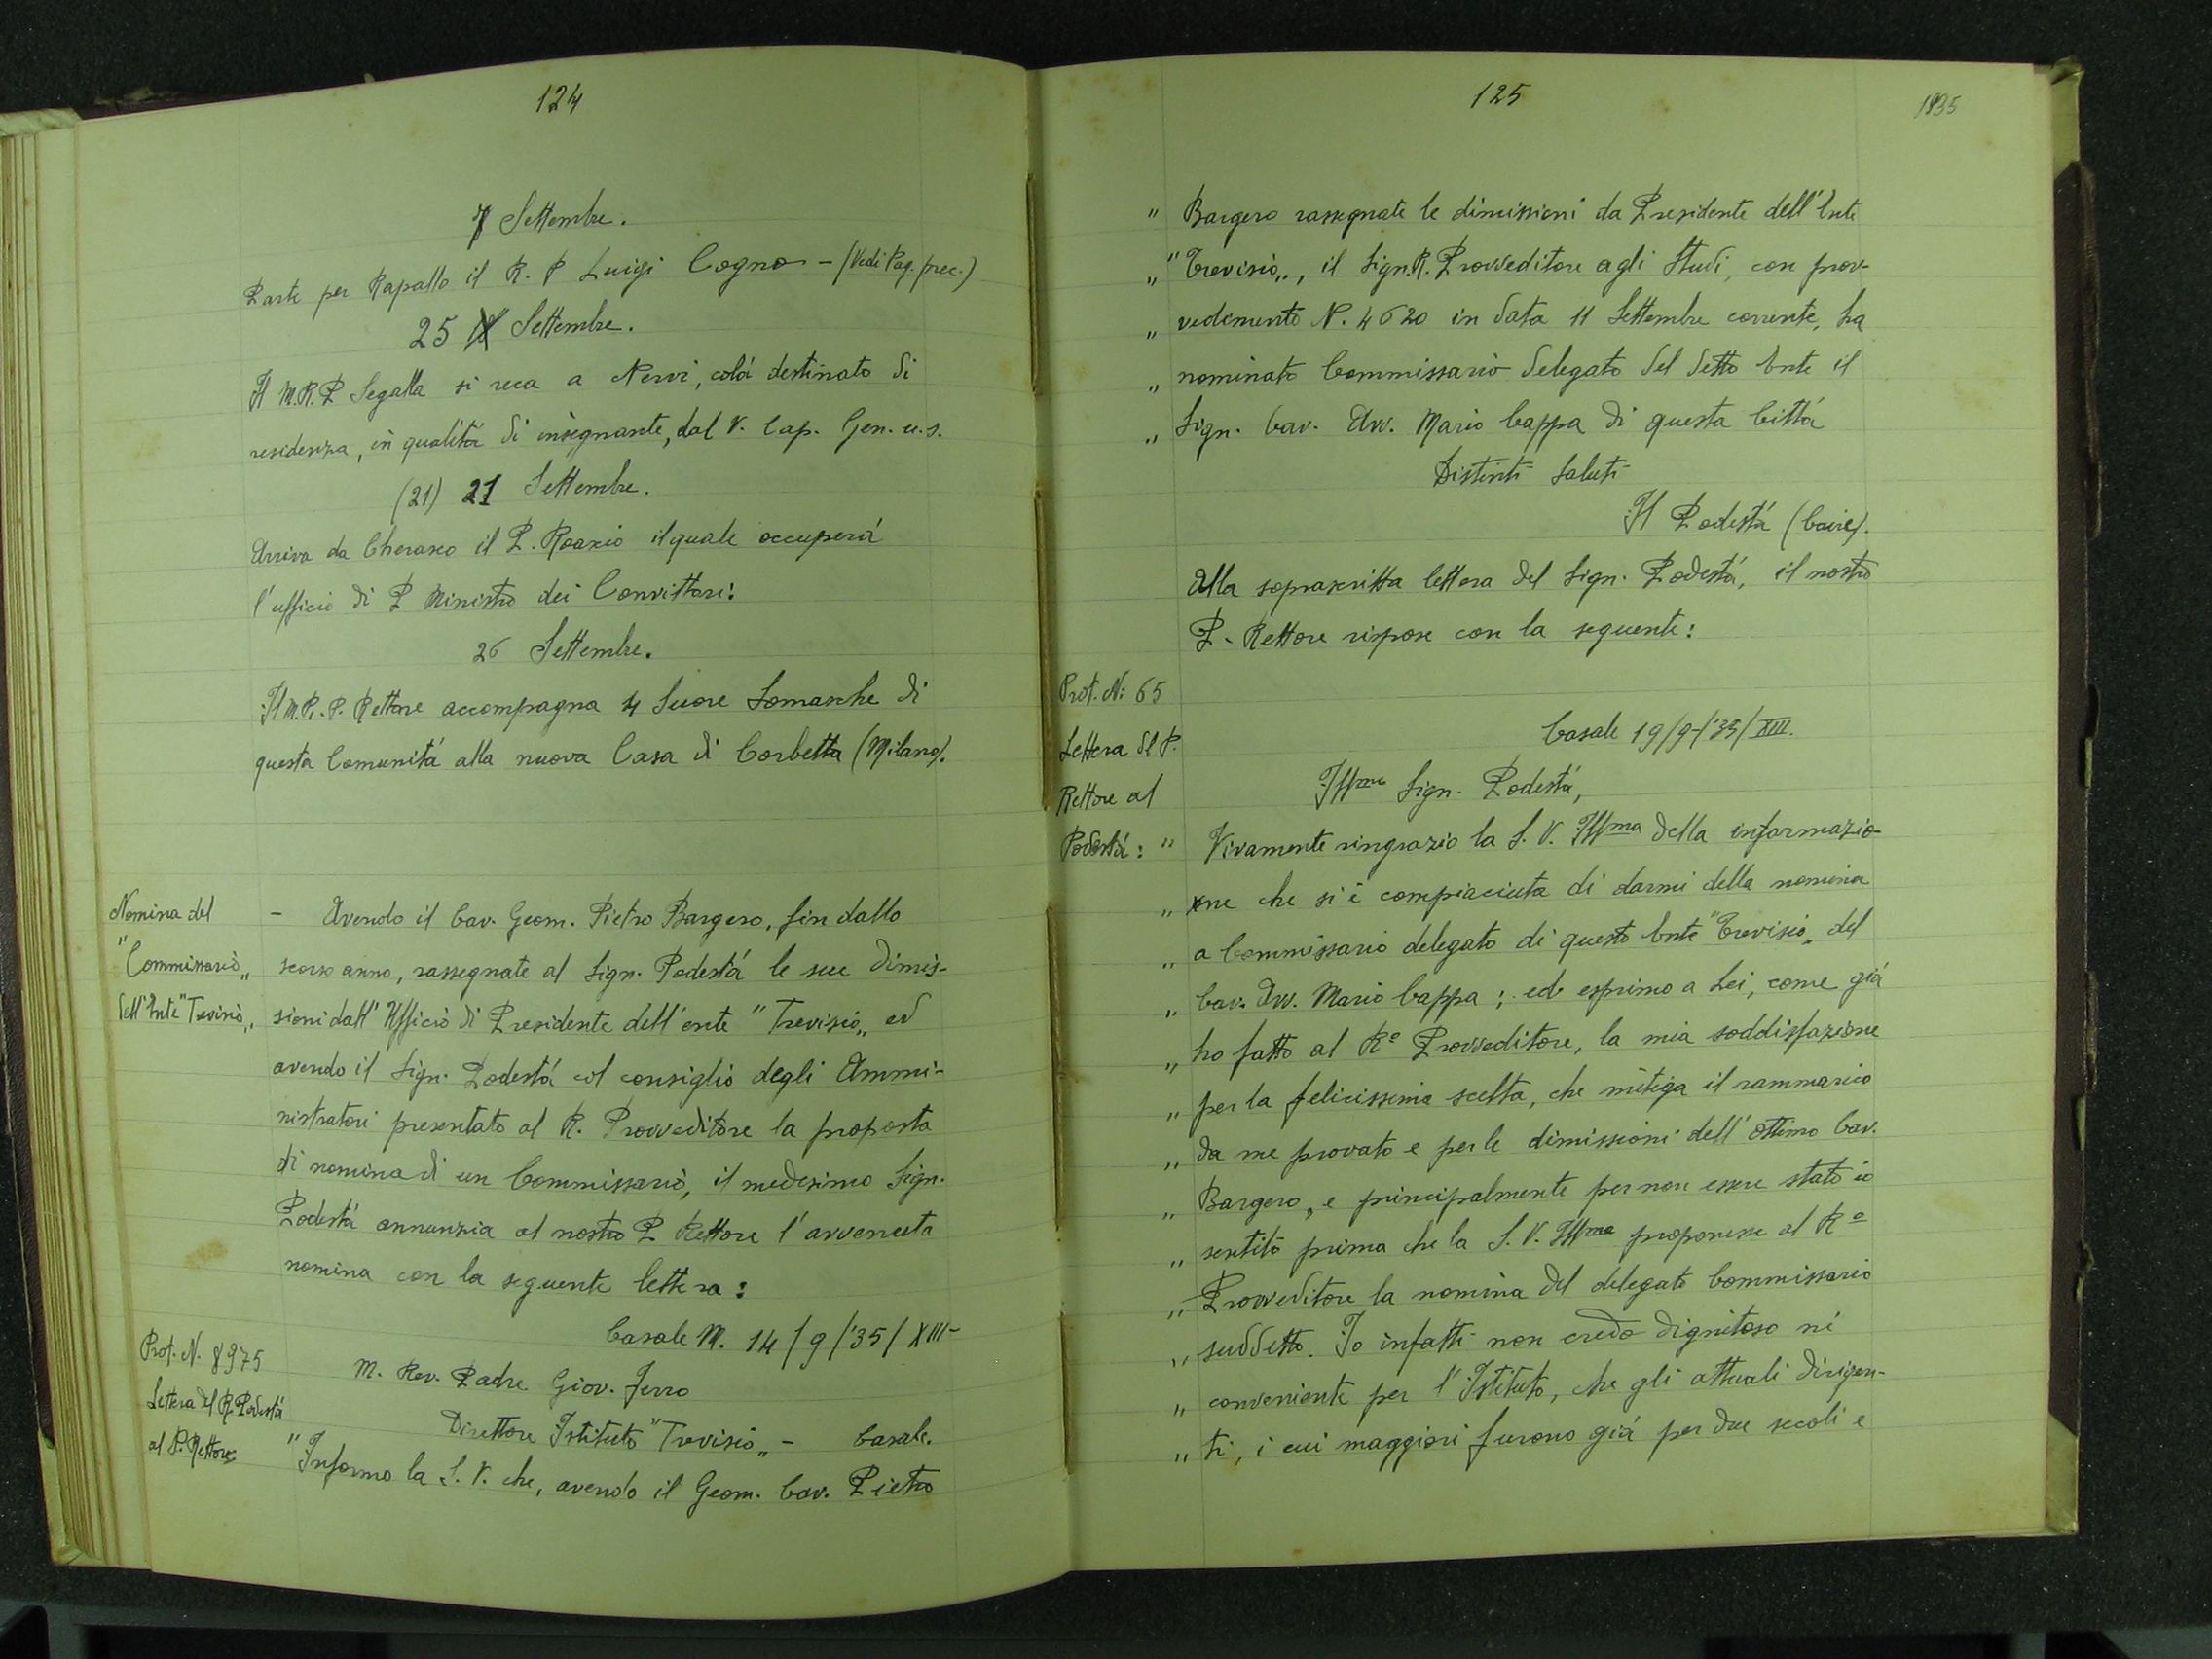 124
7 Settembre.
Parte per Rapallo il R. P Luigi Cogno - (Vedi Pag. prec.)
25 Settembre.
Il M.R.P Segalla si reca a Nervi, colá destinato di
residenza, in qualitá di insegnante, dal V. Cap. Gen. u.s.
(21) 21 Settembre.
Arriva da Cherasco il P. Roascio il quale occuperá
l'ufficio di P Ministro dei Convittori:
26 Settembre.
Il M.R.P. Rettore accompagna 4 Suore Somasche di
questa Comunitá alla nuova Casa di Corbetta (Milano).
Nomina del
"Commissario„
dell'Ente "Trevisio„
- Avendo il Cav. Geom. Pietro Bargero, fin dallo
scorso anno, rassegnate al Sign. Podestá le sue dimis-
sioni dall'Ufficio di Presidente dell'ente "Trevisio„ ed
avendo il Sign. Podestá col consiglio degli Ammi-
nistratori presentato al R. Provveditore la proposta
di nomina di un Commissario, il medesimo Sign.
Podestá annunzia al nostro P Rettore l'avvenuta
nomina con la seguente lettera:
Casale M. 14/9/'35/XIII-
Prot. N. 8975
Lettera del R. Podestá
al P. Rettore
M. Rev. Padre Giov. Ferro
Direttore Istituto "Trevisio„ - Casale.
"Informo la S. V. che, avendo il Geom. Cav. Pietro
125
1935
" Bargero rassegnate le dimissioni da Presidente dell'Ente
„ "Trevisio„, il Sign. R. Provveditore agli Studi, con prov-
„ vedimento N. 4620 in data 11 Settembre corrente, ha
„ nominato Commissario delegato del detto Ente il
„ Sign. Cav. Avv. Mario Cappa di questa Cittá
Distinti Saluti
Il Podestá (Caire).
Alla soprascritta lettera del Sign. Podestá, il nostro
P. Rettore rispose con la seguente:
Prot. N: 65
Lettera del P.
Rettore al
Podestá:
Casale 19/9/'35/XIII.
Ill.mo Sign. Podestá,
" Vivamente ringrazio la S. V. Ill.ma della informazio-
„ ne che si è compiaciuta di darmi della nomina
„ a Commissario delegato di questo Ente "Trevisio„ del
„ Cav. Avv. Mario Cappa; ed esprimo a Lei, come giá
„ ho fatto al Rº Provveditore, la mia soddisfazione
„ per la felicissima scelta, che mitiga il rammarico
„ da me provato e per le dimissioni dell'ottimo Cav.
„ Bargero, e principalmente per non essere stato io
„ sentito prima che la S. V. Ill.ma proponesse al Rº
„ Provveditore la nomina del delegato Commissario
„ suddetto. Io infatti non credo dignitoso né
„ conveniente per l'Istituto, che gli attuali dirigen-
„ ti, i cui maggiori furono giá per due secoli e